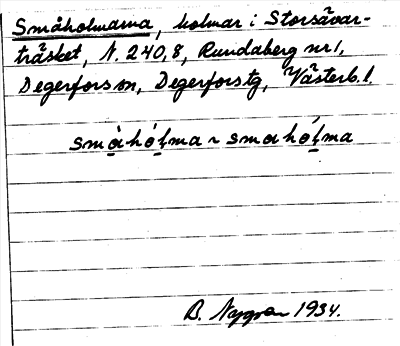 Småholmarna, holmar i Storsävar-
träsket, N. 240,8, Rundaberg nr 1,
Degerfors sn, Degerfors tg, Västerb. l.
smàhól̥ma ~ smahól̥ma
B. Nygren 1934.